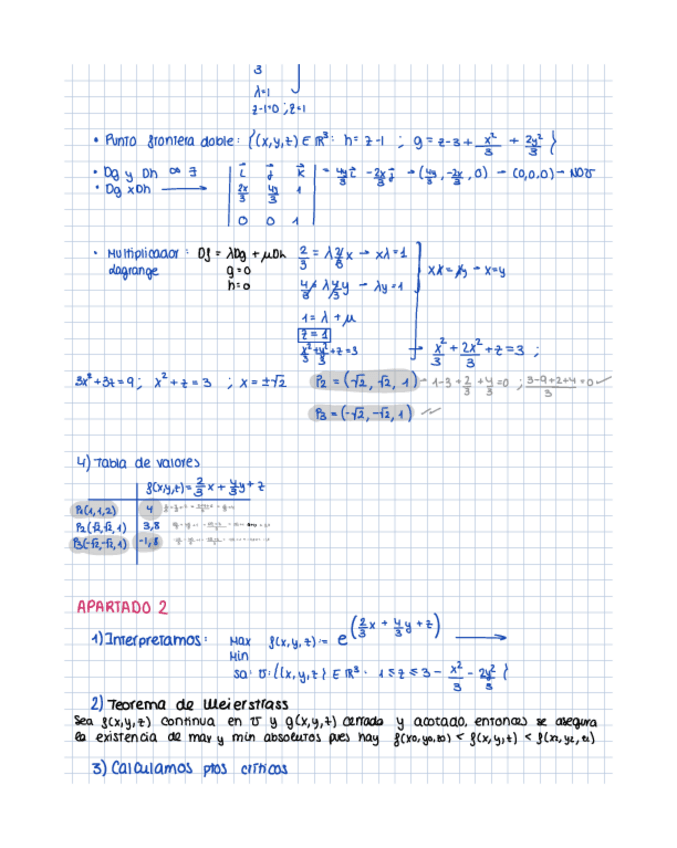 3
λ=1
z-1=0 ; z=1
• Punto frontera doble: {(x,y,z) ∈ ℝ³: h= z-1 ; g= z-3+ x²/3 + 2y²/3 }
• Dg y Dh ∞ ∃
• Dg x Dh → | i j k | = 4y/3 i - 2x/3 j → (4y/3, -2x/3, 0) - (0,0,0) - NO℧
2x/3 4y/3 1
0 0 1
• Multiplicador : Df = λDg + μDh 2/3 = λ 2/3 x → xλ=1
lagrange g=0
h=0
4/3 = λ 4/3 y - λy=1
xλ = λy → x=y
1 = λ + μ
z = 1
→ x²/3 + 2x²/3 + z = 3 ;
3x²+3z=9 ; x²+z=3 ; x=±√2 P2 = (√2, √2, 1) - 1-3+2/3+4/3=0 ; 3-9+2+4/3=0 ✓
P3 = (-√2, -√2, 1) ✓✓
4) Tabla de valores
f(x,y,z)= 2/3 x + 4/3 y + z
P1(1,1,2) 4
P2(√2,√2,1) 3,8
P3(-√2,-√2,1) -1,8
APARTADO 2
1) Interpretamos: Max f(x,y,z)= e^(2/3 x + 4/3 y + z) →
Min
sa: ℧:{(x,y,z} ∈ ℝ³. 1≤z≤3- x²/3 - 2y²/3 }
2) Teorema de Weierstrass
Sea f(x,y,z) continua en ℧ y g(x,y,z) cerrado y acotado, entonces se asegura
la existencia de max y min absolutos pues hay f(x0,y0,z0) < f(x,y,z) < f(x1,y1,z1)
3) Calculamos ptos críticos